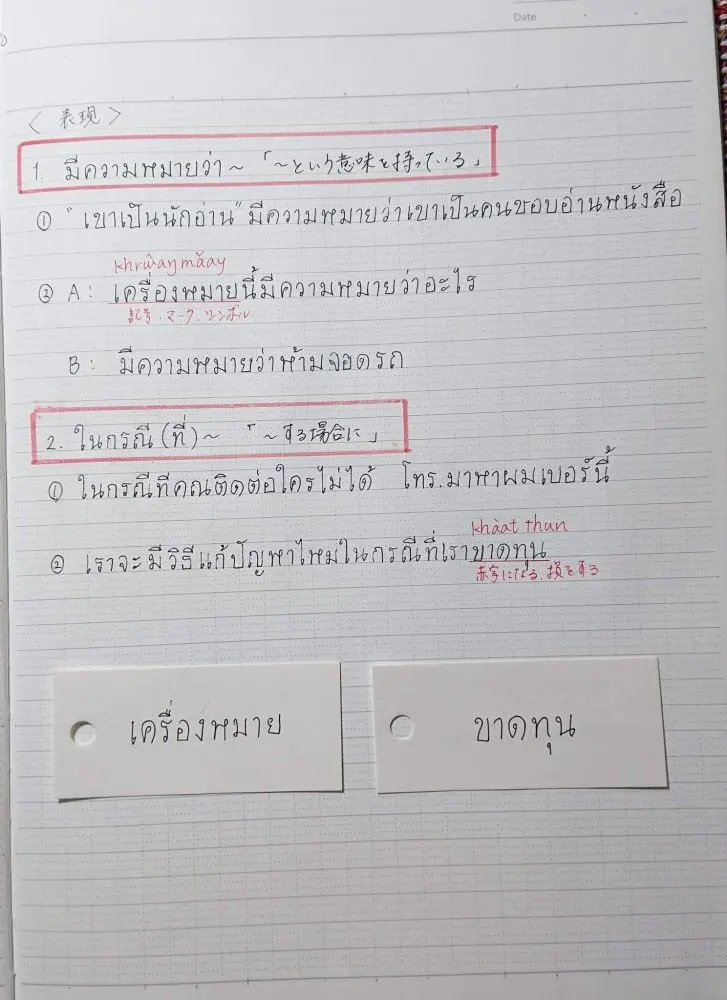 Date
〈 表現 〉
1. มีความหมายว่า ~ 「~という意味を持っている」
① "เขาเป็นนักอ่าน" มีความหมายว่าเขาเป็นคนชอบอ่านหนังสือ
khrʉ̂aŋ mǎay
② A: เครื่องหมายนี้มีความหมายว่าอะไร
記号・マーク・シンボル
B: มีความหมายว่าห้ามจอดรถ
2. ในกรณี (ที่) ~ 「~する場合に」
① ในกรณีที่คุณติดต่อใครไม่ได้ โทร.มาหาผมเบอร์นี้
khàat thun
② เราจะมีวิธีแก้ปัญหาไหมในกรณีที่เราขาดทุน
赤字になる、損をする
เครื่องหมาย
ขาดทุน